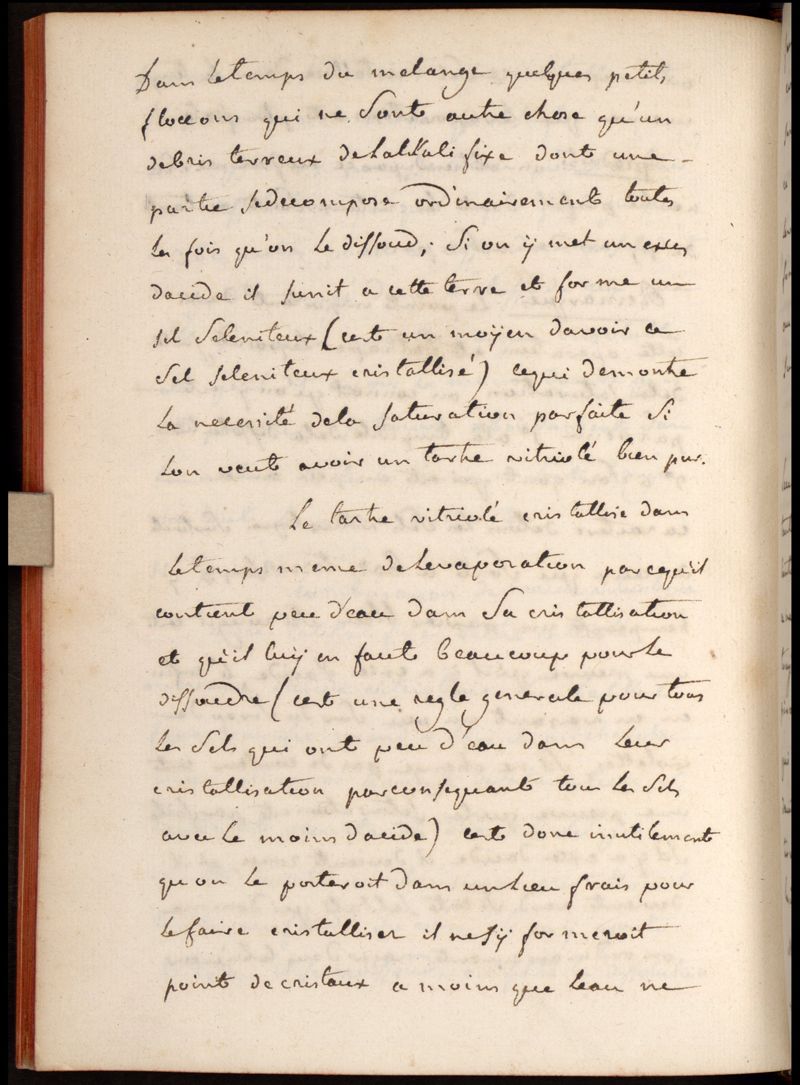 Dans letemps du melange quelques petits
floccons qui ne sont autre chose qu'un
debris terreux delalkali fixe dont une
partie sedecompose ordinairement toutes
les fois qu'on le dissoud, Si on ÿ met un exces
dacide il sunit a cette terre et forme un
sel seleniteux (cest un moÿen davoir ce
Sel seleniteux cristallisé) cequi demontre
la necessité dela saturation parfaite Si
lon veut avoir un tartre vitriolé bien pur.
Le tartre vitriolé cristallise dans
letemps meme delevaporation parcequ'il
contient peu d'eau dans Sa cristallisation
et qu'il luÿ en faut beaucoup pourle
dissoudre (cest une regle generale pour tous
les Sels qui ont peu d'eau dans leur
cristallisation parconsequant tous les Sels
avec le moins dacide) cest donc inutilement
qu'on le porteroit dans unlieu frais pour
lefaire cristalliser il nesÿ formeroit
point decristaux a moins que leau ne